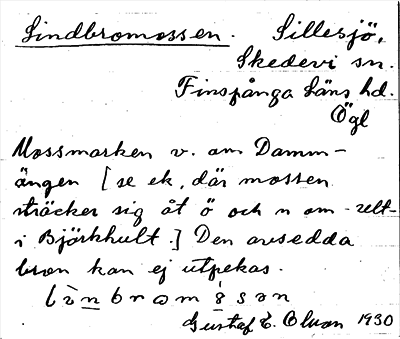 Lindbromossen. Sillesjö,
Skedevi sn.
Finspånga Läns hd.
Ögl
Mossmarken v. om Damm-
ängen [se ek, där mossen
sträcker sig åt ö och n om
i Björkhult.] Den avsedda
bron kan ej utpekas.
Gustaf E. Olson 1930